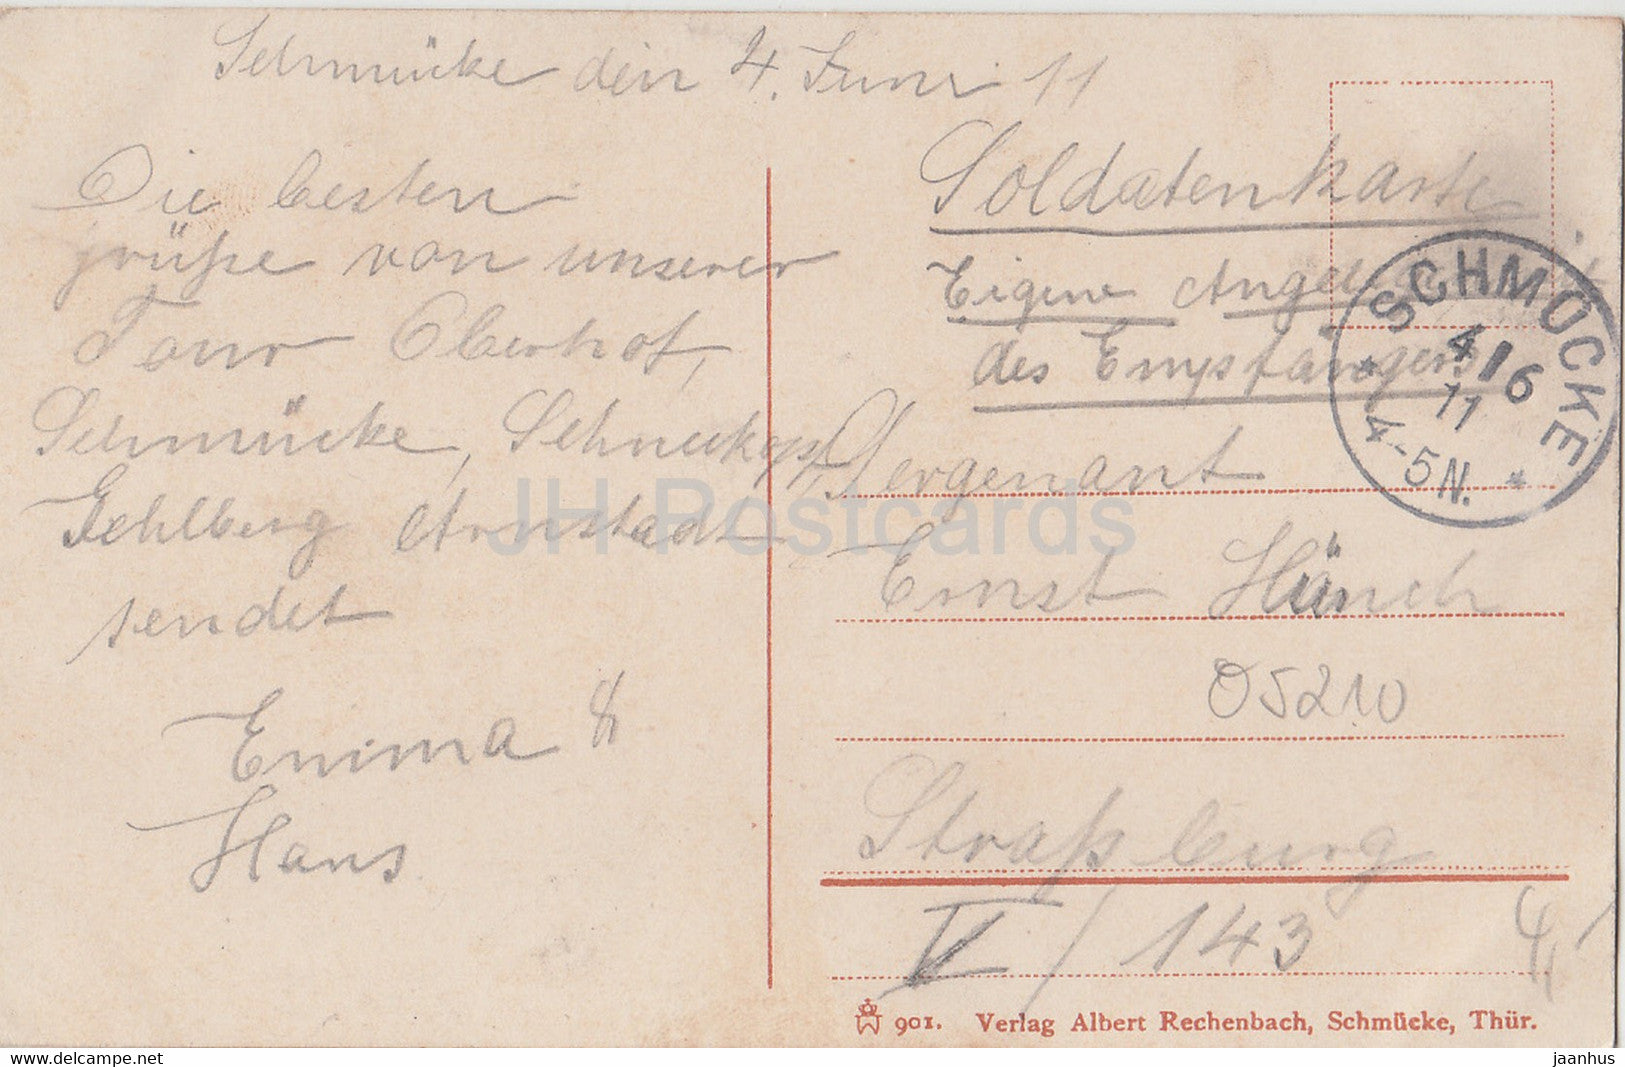 Schmücke den 4. Juni 11
Die besten
grüße von unserer
Tour Oberhof,
Schmücke, Schneekopf,
Gehlberg Arnstadt
sendet
Emma &
Hans
Soldatenkarte
Eigene Angel
des Empfängers
SCHMÜCKE
4 6
11
* 4-5N. *
Sergenant
Ernst Hünch
05210
Straßburg
V / 143
901. Verlag Albert Rechenbach, Schmücke, Thür.
JH Postcards
jaanhus